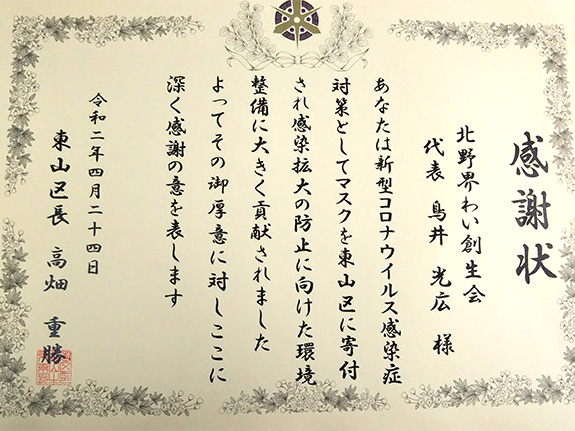 感謝状
北野界わい創生会
代表 鳥井 光広 様
あなたは新型コロナウイルス感染症
対策としてマスクを東山区に寄付
され感染拡大の防止に向けた環境
整備に大きく貢献されました
よってその御厚意に対しここに
深く感謝の意を表します
令和二年四月二十四日
東山区長 高畑 重勝